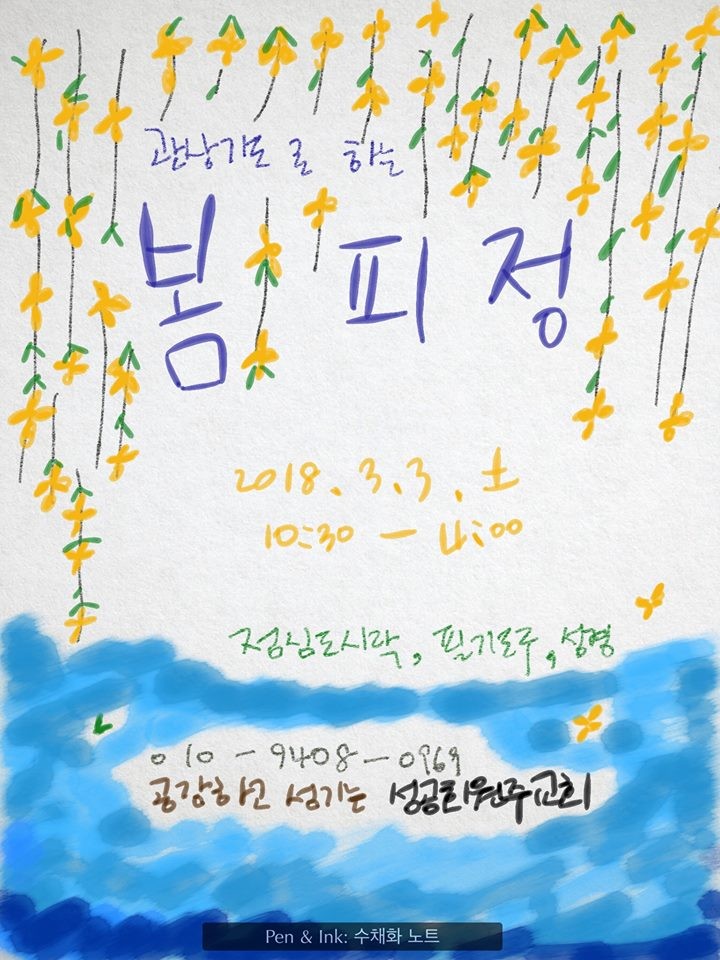 관상기도로 하는
봄 피정
2018. 3. 3. 土
10:30 - 4:00
점심도시락, 필기도구, 성경
010-9408-0969
공감하고 섬기는 성공회원주교회
Pen & Ink: 수채화 노트